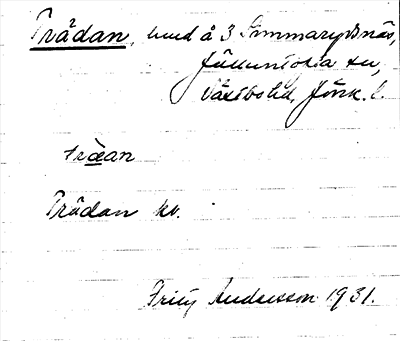 Trådan, hmd å 3 Simmarydsnäs,
Jälluntofta sn,
Västbo hd, Jönk. l.
tràean
Trådan kv.
Frity Andersson 1931.